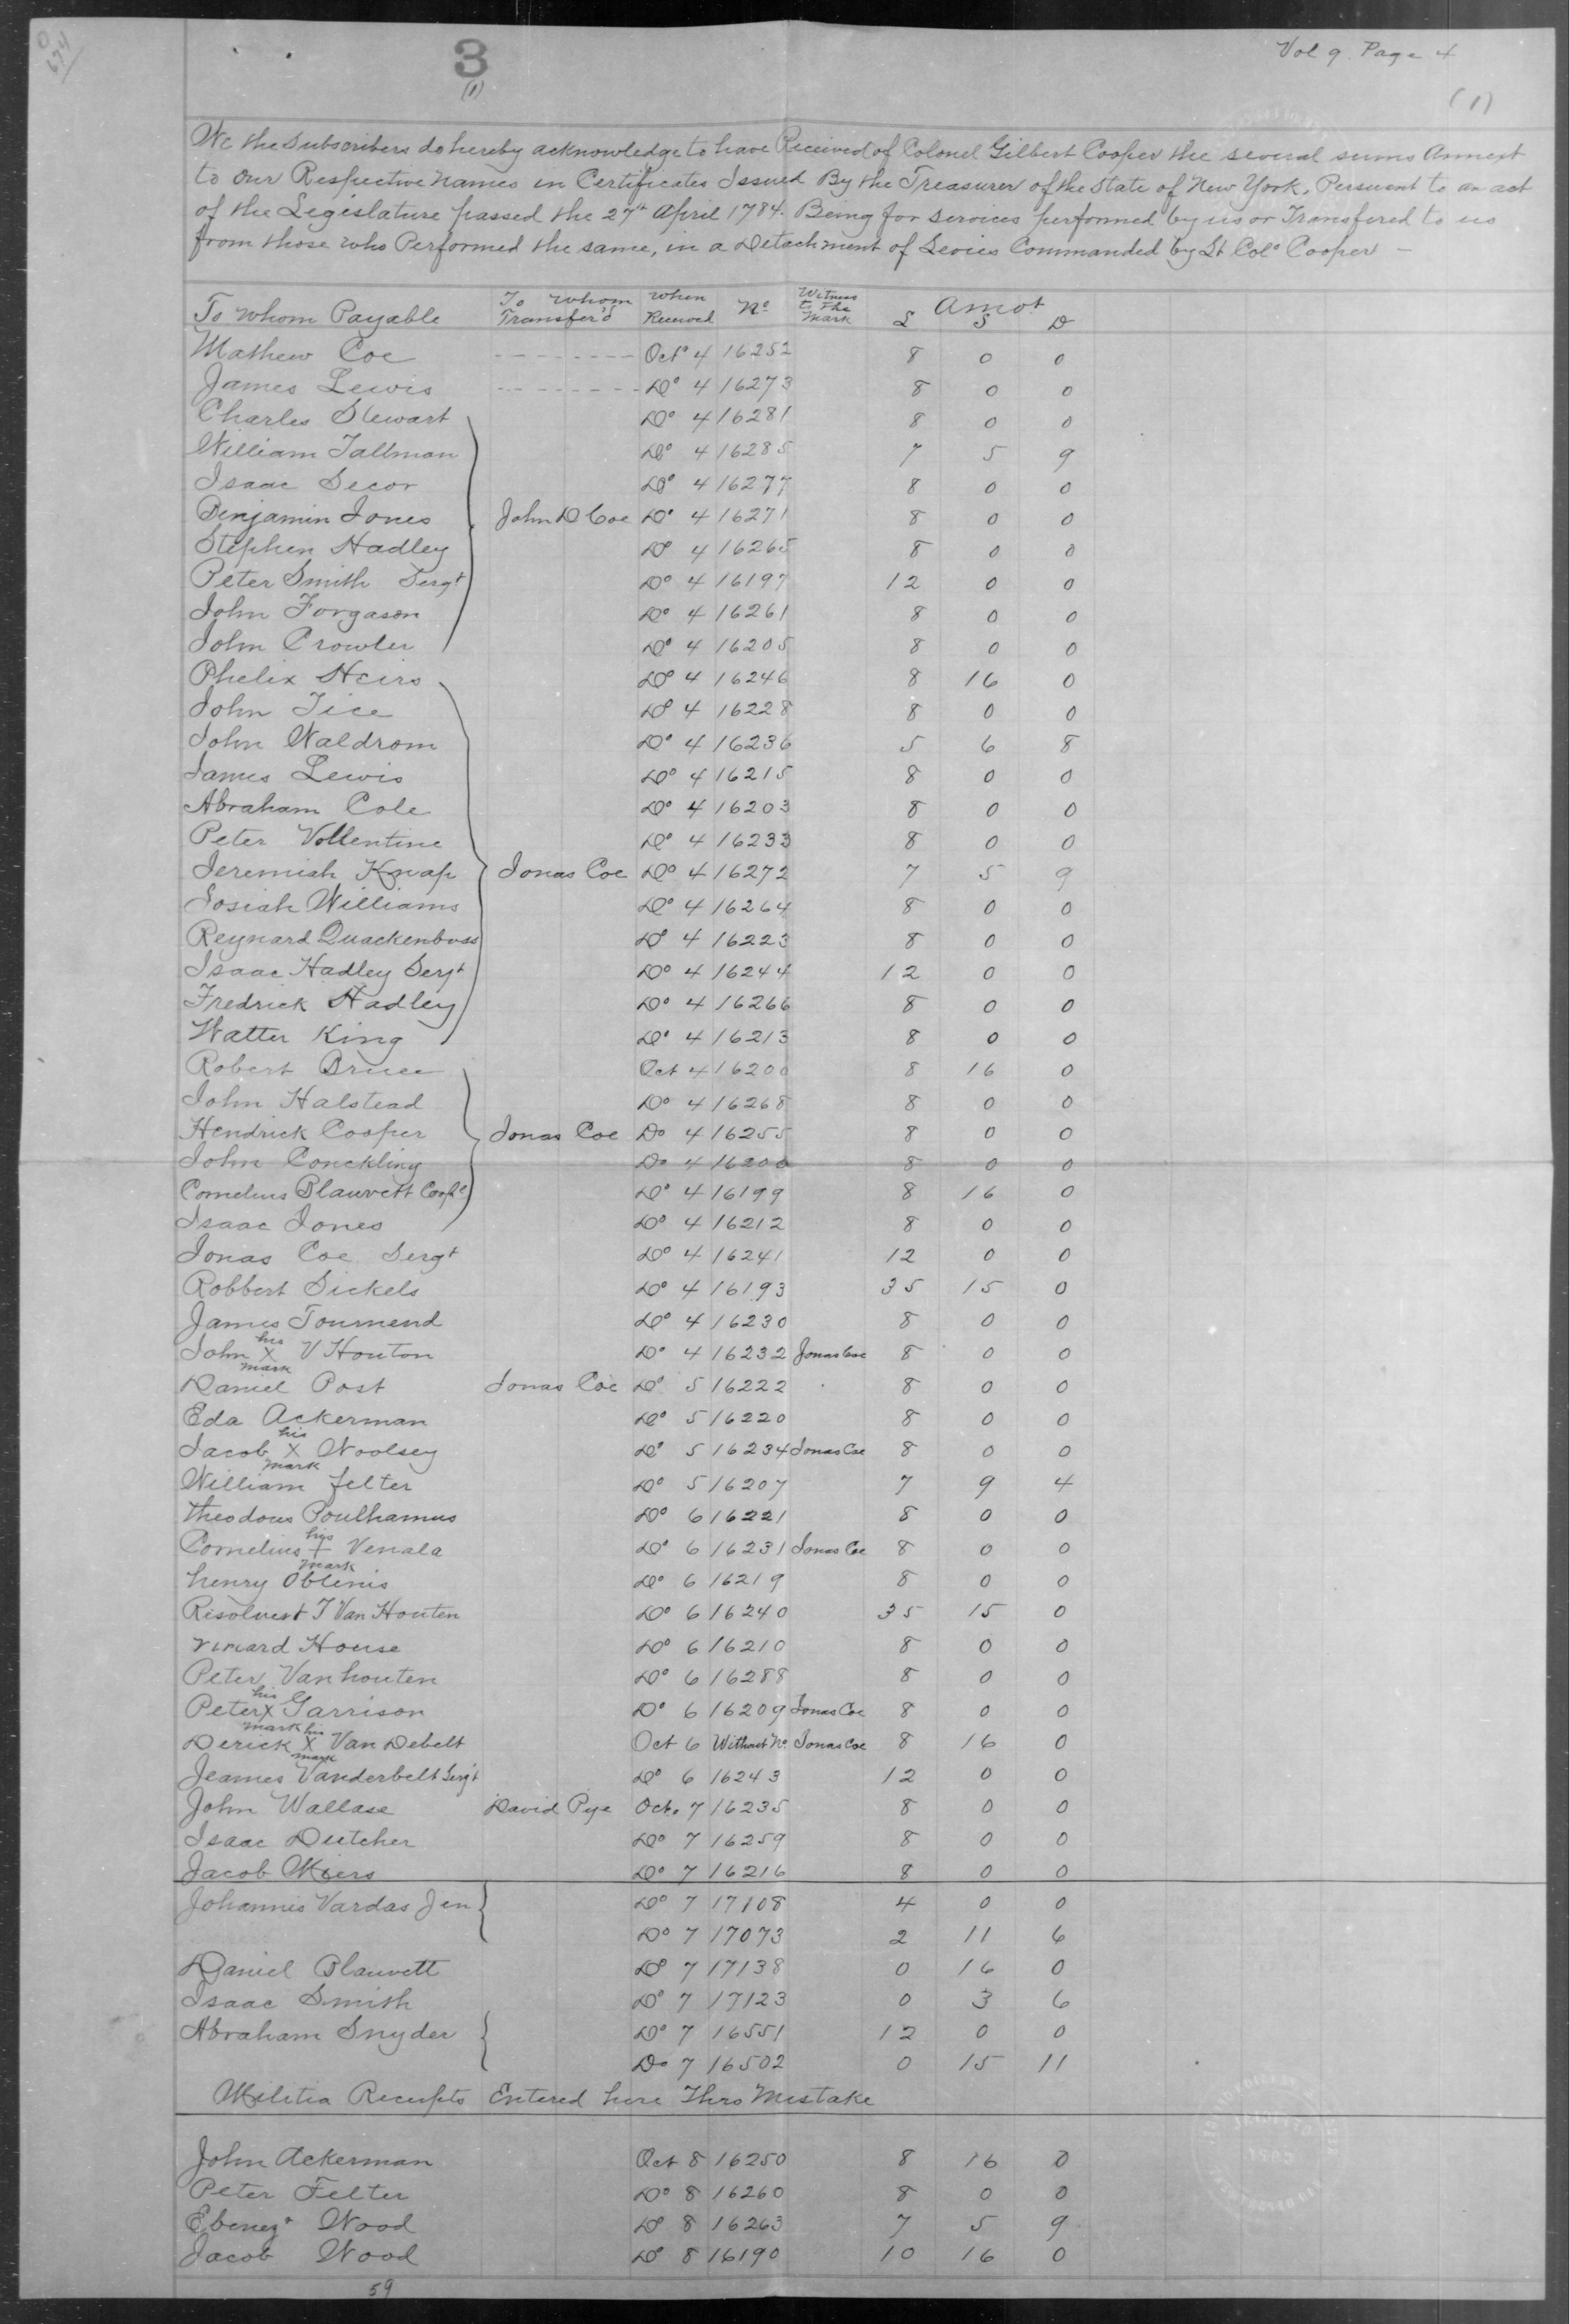 Vol 9 Page 4
3
(1)
(1)
We the Subscribers do hereby acknowledge to have Received of Colonel Gilbert Cooper the several sums Annext
to our Respective names in Certificates Issued By the Treasurer of the State of New York, Persuant to an act
of the Legislature passed the 27t April 1784. Being for services performed by us or Transfered to us
from those who Performed the same, in a Detachment of Levies Commanded by Lt Colo Cooper —
To whom Payable To Whom Transfer'd When Received No Witness to the Mark Amot £ S D
Mathew Coe Octo 4 16252 8 0 0
James Lewis Do 4 16273 8 0 0
Charles Stewart Do 4 16281 8 0 0
William Tallman Do 4 16285 7 5 9
Isaac Secor Do 4 16277 8 0 0
Benjamin Jones John D Coe Do 4 16271 8 0 0
Stephen Hadley Do 4 16265 8 0 0
Peter Smith Sergt Do 4 16197 12 0 0
John Forgason Do 4 16261 8 0 0
John Crowter Do 4 16205 8 0 0
Phelix Heirs Do 4 16246 8 16 0
John Tice Do 4 16228 8 0 0
John Waldrom Do 4 16236 5 6 8
James Lewis Do 4 16215 8 0 0
Abraham Cole Do 4 16203 8 0 0
Peter Vollentine Do 4 16233 8 0 0
Jeremiah Knap Jonas Coe Do 4 16272 7 5 9
Josiah Williams Do 4 16264 8 0 0
Reynard Quackenbuss Do 4 16223 8 0 0
Isaac Hadley Sergt Do 4 16244 12 0 0
Fredrick Hadley Do 4 16266 8 0 0
Watter King Do 4 16213 8 0 0
Robert Bruce Oct 4 16200 8 16 0
John Halstead Do 4 16268 8 0 0
Hendrick Cooper Jonas Coe Do 4 16255 8 0 0
John Conckling Do 4 8 0 0
Cornelius Blauvett Do 4 16199 8 16 0
Isaac Jones Do 4 16212 8 0 0
Jonas Coe Sergt Do 4 16241 12 0 0
Robbert Sickels Do 4 16193 35 15 0
James Tournend Do 4 16230 8 0 0
John his X mark V Houton Do 4 16232 Jonas Coe 8 0 0
Daniel Post Jonas Coe Do 5 16222 8 0 0
Eda Ackerman Do 5 16220 8 0 0
Jacob his X mark Woolsey Do 5 16234 Jonas Coe 8 0 0
William felter Do 5 16207 7 9 4
Theodous Poulhamus Do 6 16221 8 0 0
Cornelius his + mark Venala Do 6 16231 Jonas Coe 8 0 0
henry Oblenis Do 6 16219 8 0 0
Risolvert T Van Houten Do 6 16240 35 15 0
House Do 6 16210 8 0 0
Peter Vanhouten Do 6 16288 8 0 0
Peter his X mark Garrison Do 6 16209 Jonas Coe 8 0 0
Derick his X mark Van Debelt Oct 6 Without No Jonas Coe 8 16 0
Jeames Vanderbelt Sergt Do 6 16243 12 0 0
John Wallase David Pye Octo 7 16235 8 0 0
Isaac Dutcher Do 7 16259 8 0 0
Jacob Miers Do 7 16216 8 0 0
Johannis Vardas Jen Do 7 17108 4 0 0
Do 7 17073 2 11 6
Daniel Blauvett Do 7 17138 0 16 0
Isaac Smith Do 7 17123 0 3 6
Abraham Snyder Do 7 16551 12 0 0
Do 7 16502 0 15 11
Militia Receipts Entered here Thro Mistake
John Ackerman Oct 8 16250 8 16 0
Peter Felter Do 8 16260 8 0 0
Ebenezr Wood Do 8 16263 7 5 9
Jacob Wood Do 8 16190 10 16 0
59